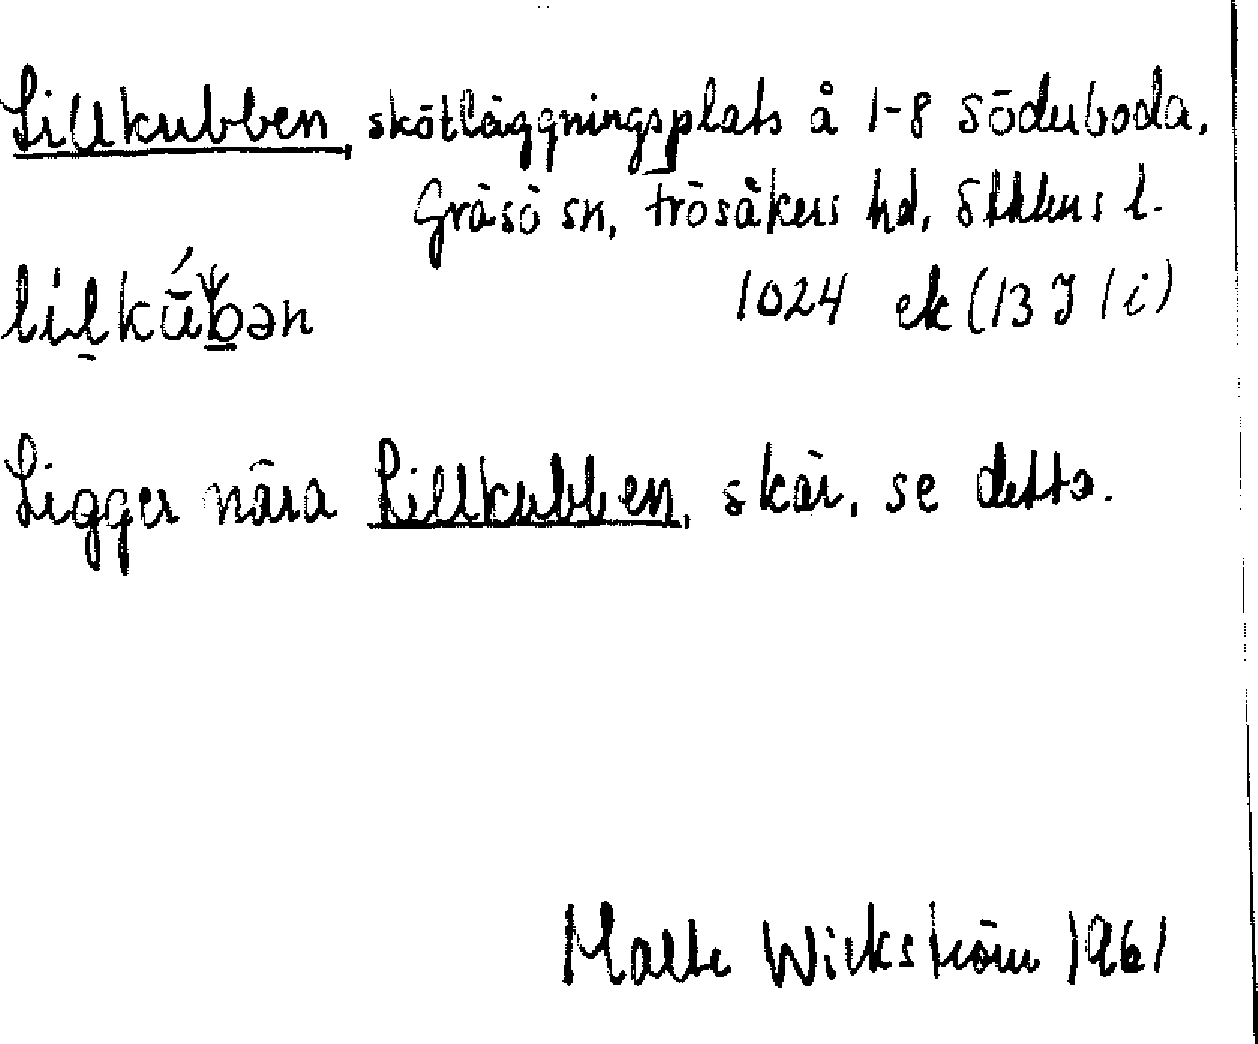 Lillkubben, skötläggningsplats å 1-8 Söderboda,
Gräsö sn, Frösåkers hd, Sthlms l.
1024 ek (13 J 1 i)
Ligger nära Lillkubben, skär, se detta.
Malte Wickström 1961